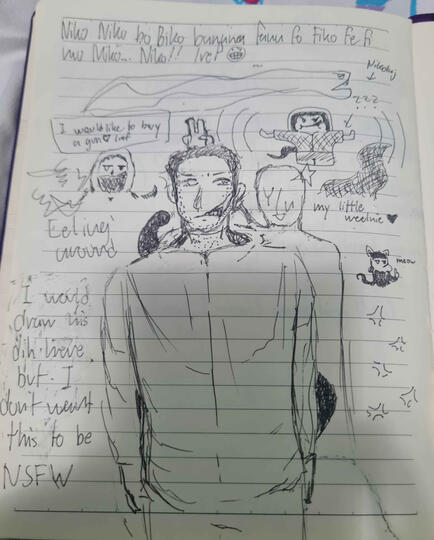 Niko Niko bo Biko banana fana fo Fiko Fe Fi
mo Miko... Niko!!
Nikolaj
zzz
I would like to buy
a gun
my little
weenie
meow
I would
draw his
dih here
but I
don't want
this to be
NSFW